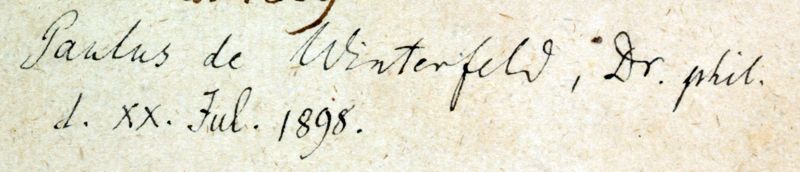 Paulus de Winterfeld, Dr. phil.
d. XX. Jul. 1898.